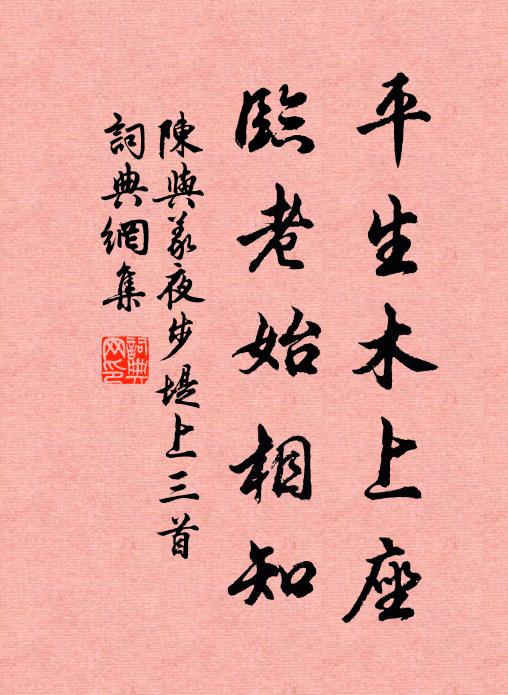 平生木上座
臨老始相知
陳與義夜步堤上三首
詞典網集
詞典網印